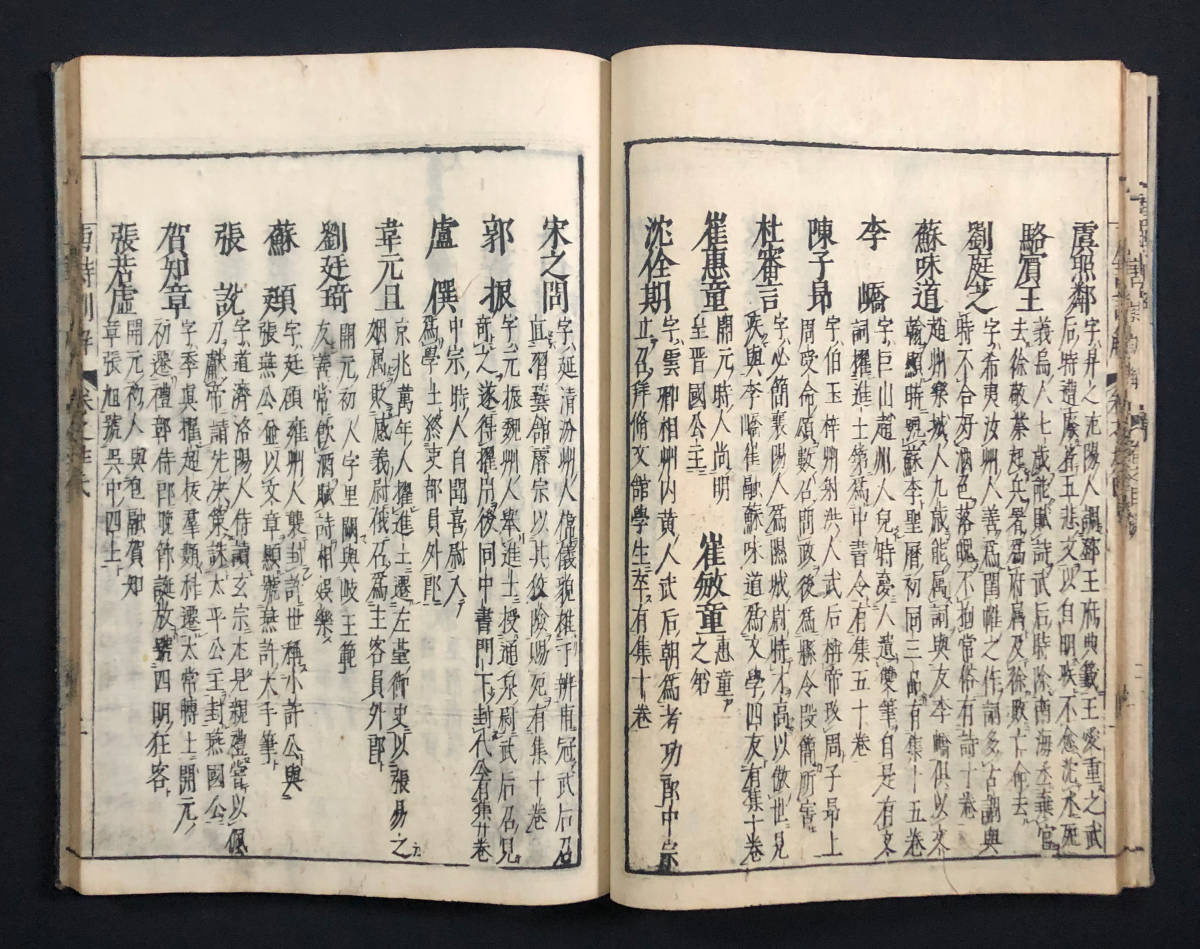 盧照鄰 字昇之范陽人調鄧王府典籤王愛重之武
后時遭廢著五悲文以自明疾不愈沈水死
駱賓王 義烏人七歲能賦詩武后時除臨海丞棄官
去徐敬業起兵署爲府屬及徐敗亡命去
劉庭芝 字希夷汝州人善爲閨帷之作詞多古調與
時不合好酒色落魄不拘常俗有詩十卷
蘇味道 趙州欒城人九歲能屬詞與友李嶠俱以文
翰顯時號蘇李聖曆初同三品有集十五卷
李嶠 字巨山趙州人兒時夢人遺雙筆自是有文
詞擢進士第爲中書令有集五十卷
陳子昂 字伯玉梓州射洪人武后稱帝改周子昂上
周受命頌數召問政後爲縣令段簡所害
杜審言 字必簡襄陽人爲隰城尉恃才高以傲世見
疾與李嶠崔融蘇味道爲文學四友有集十卷
崔惠童 開元時人尚明
皇晋國公主
崔敏童 惠童
之弟
沈佺期 字雲卿相州内黄人武后朝爲考功郎中宗
立召拜脩文館學生卒有集十卷
宋之問 字延清汾州人偉儀貌雄于辨甫冠武后召
直習藝館睿宗以其狡險賜死有集十卷
郭振 字元振魏州人舉進士授通泉尉武后召見
奇之遂得擢用後同中書門下封代公有集廿卷
盧僎 中宗時人自聞喜尉入
爲學士終吏部員外郎
韋元旦 京兆萬年人擢進士遷左臺御史以張易之
姻属敗感義尉俄召爲主客員外郎
劉廷琦 開元初人字里闕與岐王範
友善常飲酒賦詩相娯樂
蘇頲 字廷碩雍州人襲封許世稱小許公與
張燕公並以文章顯號燕許大手筆
張說 字道濟洛陽人侍讀玄宗尤見親禮嘗以佩
刀獻帝請先決策誅太平公主封燕國公
賀知章 字季真擢超拔羣類科遷太常博士開元
初遷禮部侍郎晚節誕放號四明狂客
張若虛 開元初人與包融賀知
章張旭號吳中四士
唐詩訓解